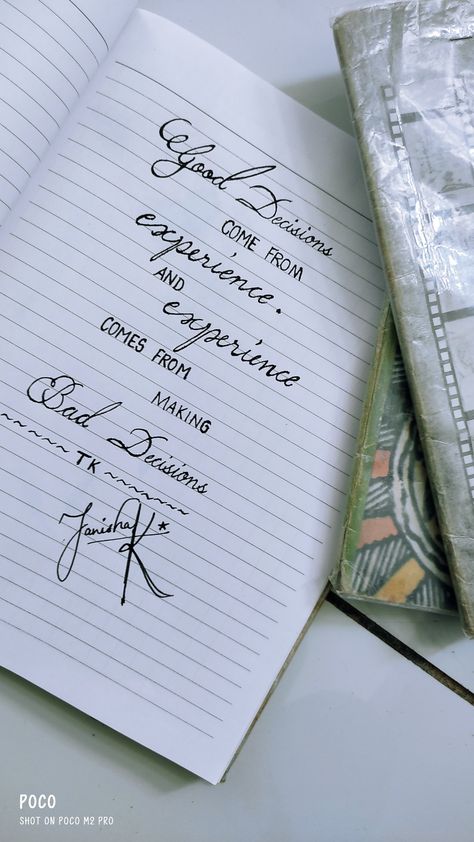 Good Decisions
COME FROM
experience.
AND
experience
COMES FROM
MAKING
Bad Decisions
~~~~~ TK ~~~~~~~
Tanisha K*
POCO
SHOT ON POCO M2 PRO